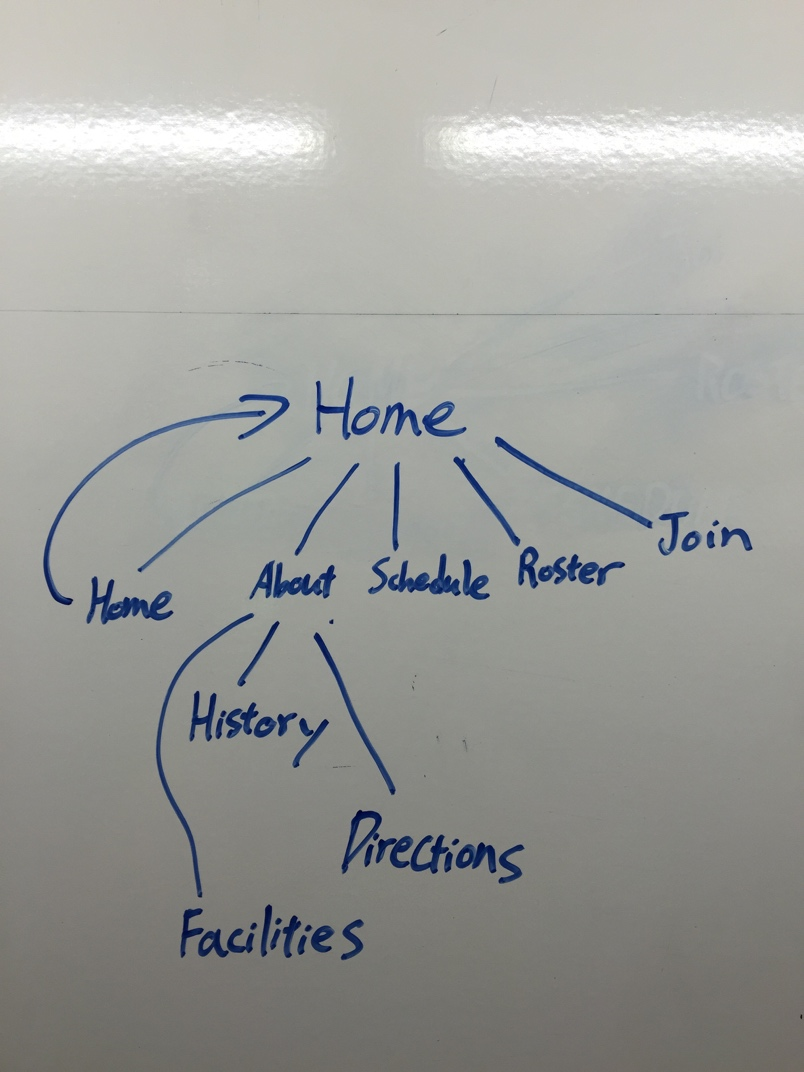 Home
Home About Schedule Roster Join
History
Directions
Facilities